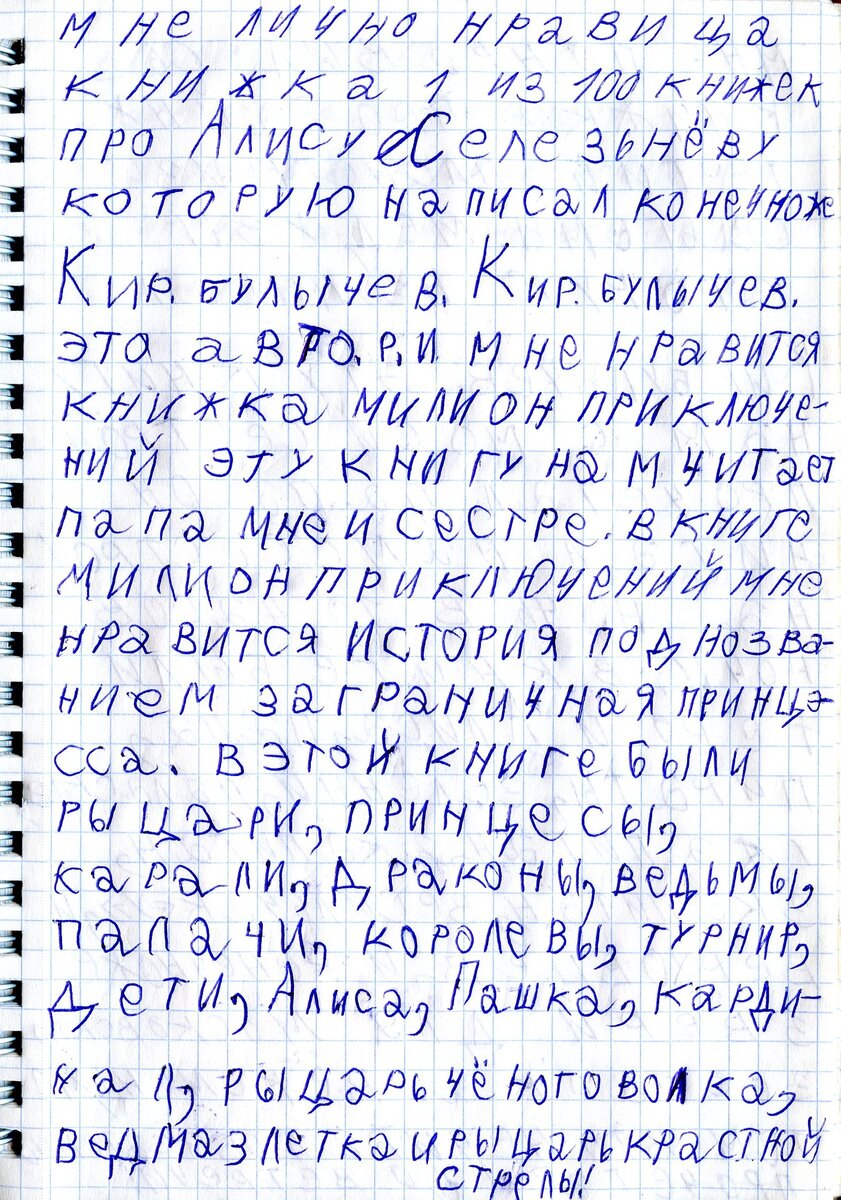 мне лично нравица
книжка 1 из 100 книжек
про Алису Селезьнёву
которую написал конечноже
Кир. булычев. Кир. булычев.
это автро.р.и мне нравится
книжка милион приключе-
ний эту книгу нам читает
папа мне и сестре. в книге
милион приключений мне
нравится история под нозва-
нием заграничная принцэ-
сса. в этой книге были
рыцари, принцесы,
карали, драконы, ведьмы,
палачи, королевы, турнир,
дети, Алиса, Пашка, карди-
нал, рыцарь чёного волка,
ведма злетка и рыцарь крастной
стрелы!